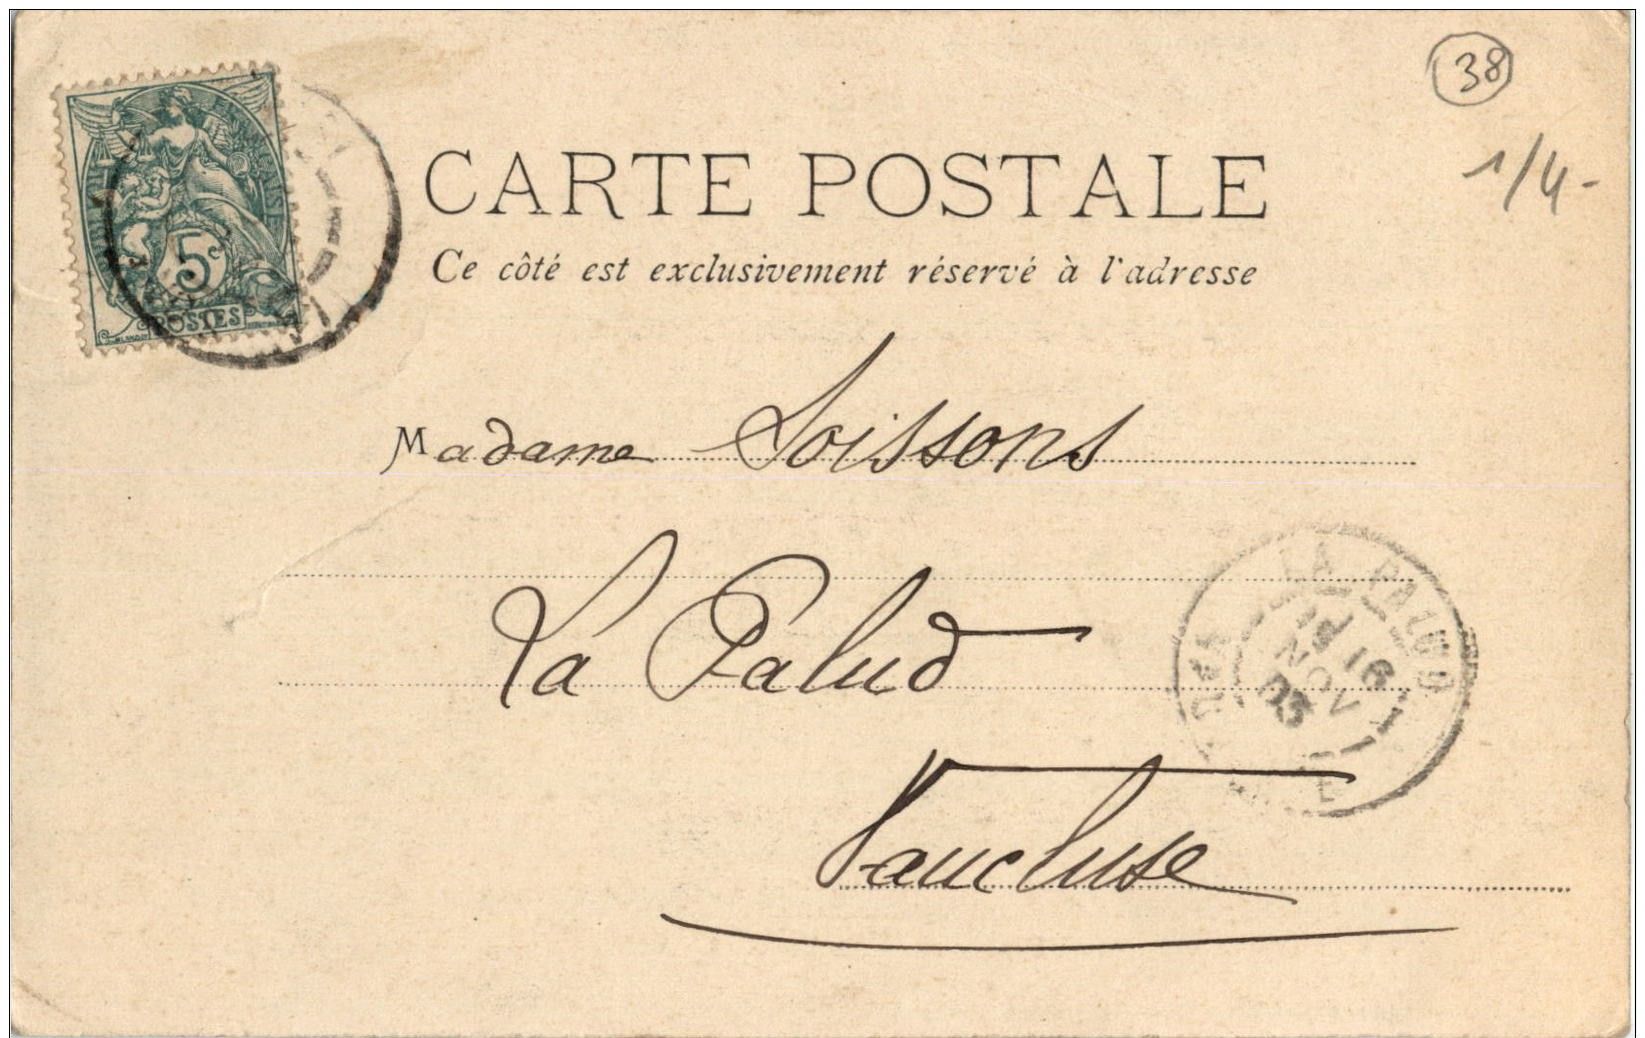 38
1/4-
5c
POSTES
CARTE POSTALE
Ce côté est exclusivement réservé à l'adresse
Madame Soissons
La Palud
Vaucluse
LA PALUD
16
NOV
03